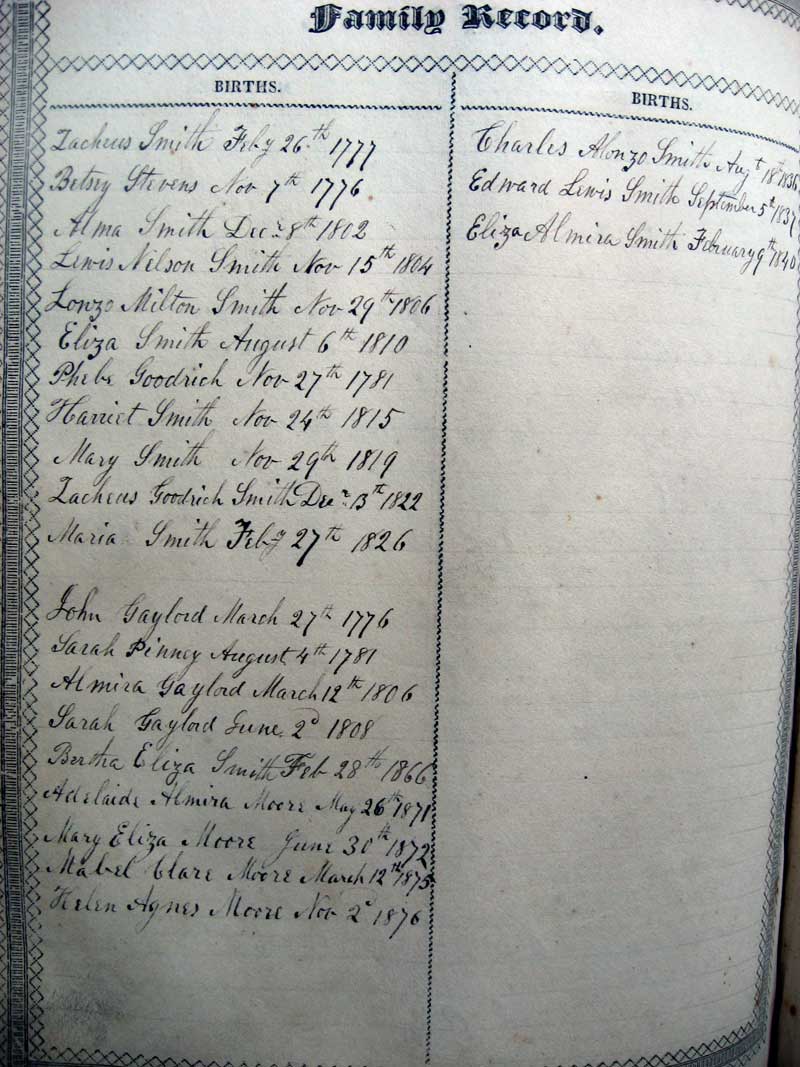 Family Record.
BIRTHS.
Zacheus Smith Feby 26th 1777
Betsey Stevens Nov 7th 1776
Alma Smith Decr 8th 1802
Lewis Nelson Smith Nov 15th 1804
Lonzo Milton Smith Nov 29th 1806
Eliza Smith August 6th 1810
Phebe Goodrich Nov 27th 1781
Harriet Smith Nov 24th 1815
Mary Smith Nov 29th 1819
Zacheus Goodrich Smith Decr 13th 1822
Maria Smith Feby 27th 1826
John Gaylord March 27th 1776
Sarah Pinney August 4th 1781
Almira Gaylord March 12th 1806
Sarah Gaylord June 2d 1808
Bertha Eliza Smith Feb 28th 1866
Adelaide Almira Moore May 26th 1871
Mary Eliza Moore June 30th 1872
Mabel Clare Moore March 12th 1875
Helen Agnes Moore Nov 2d 1876
BIRTHS.
Charles Alonzo Smith Augt 18th 1836
Edward Lewis Smith September 5th 1837
Eliza Almira Smith February 9th 1840